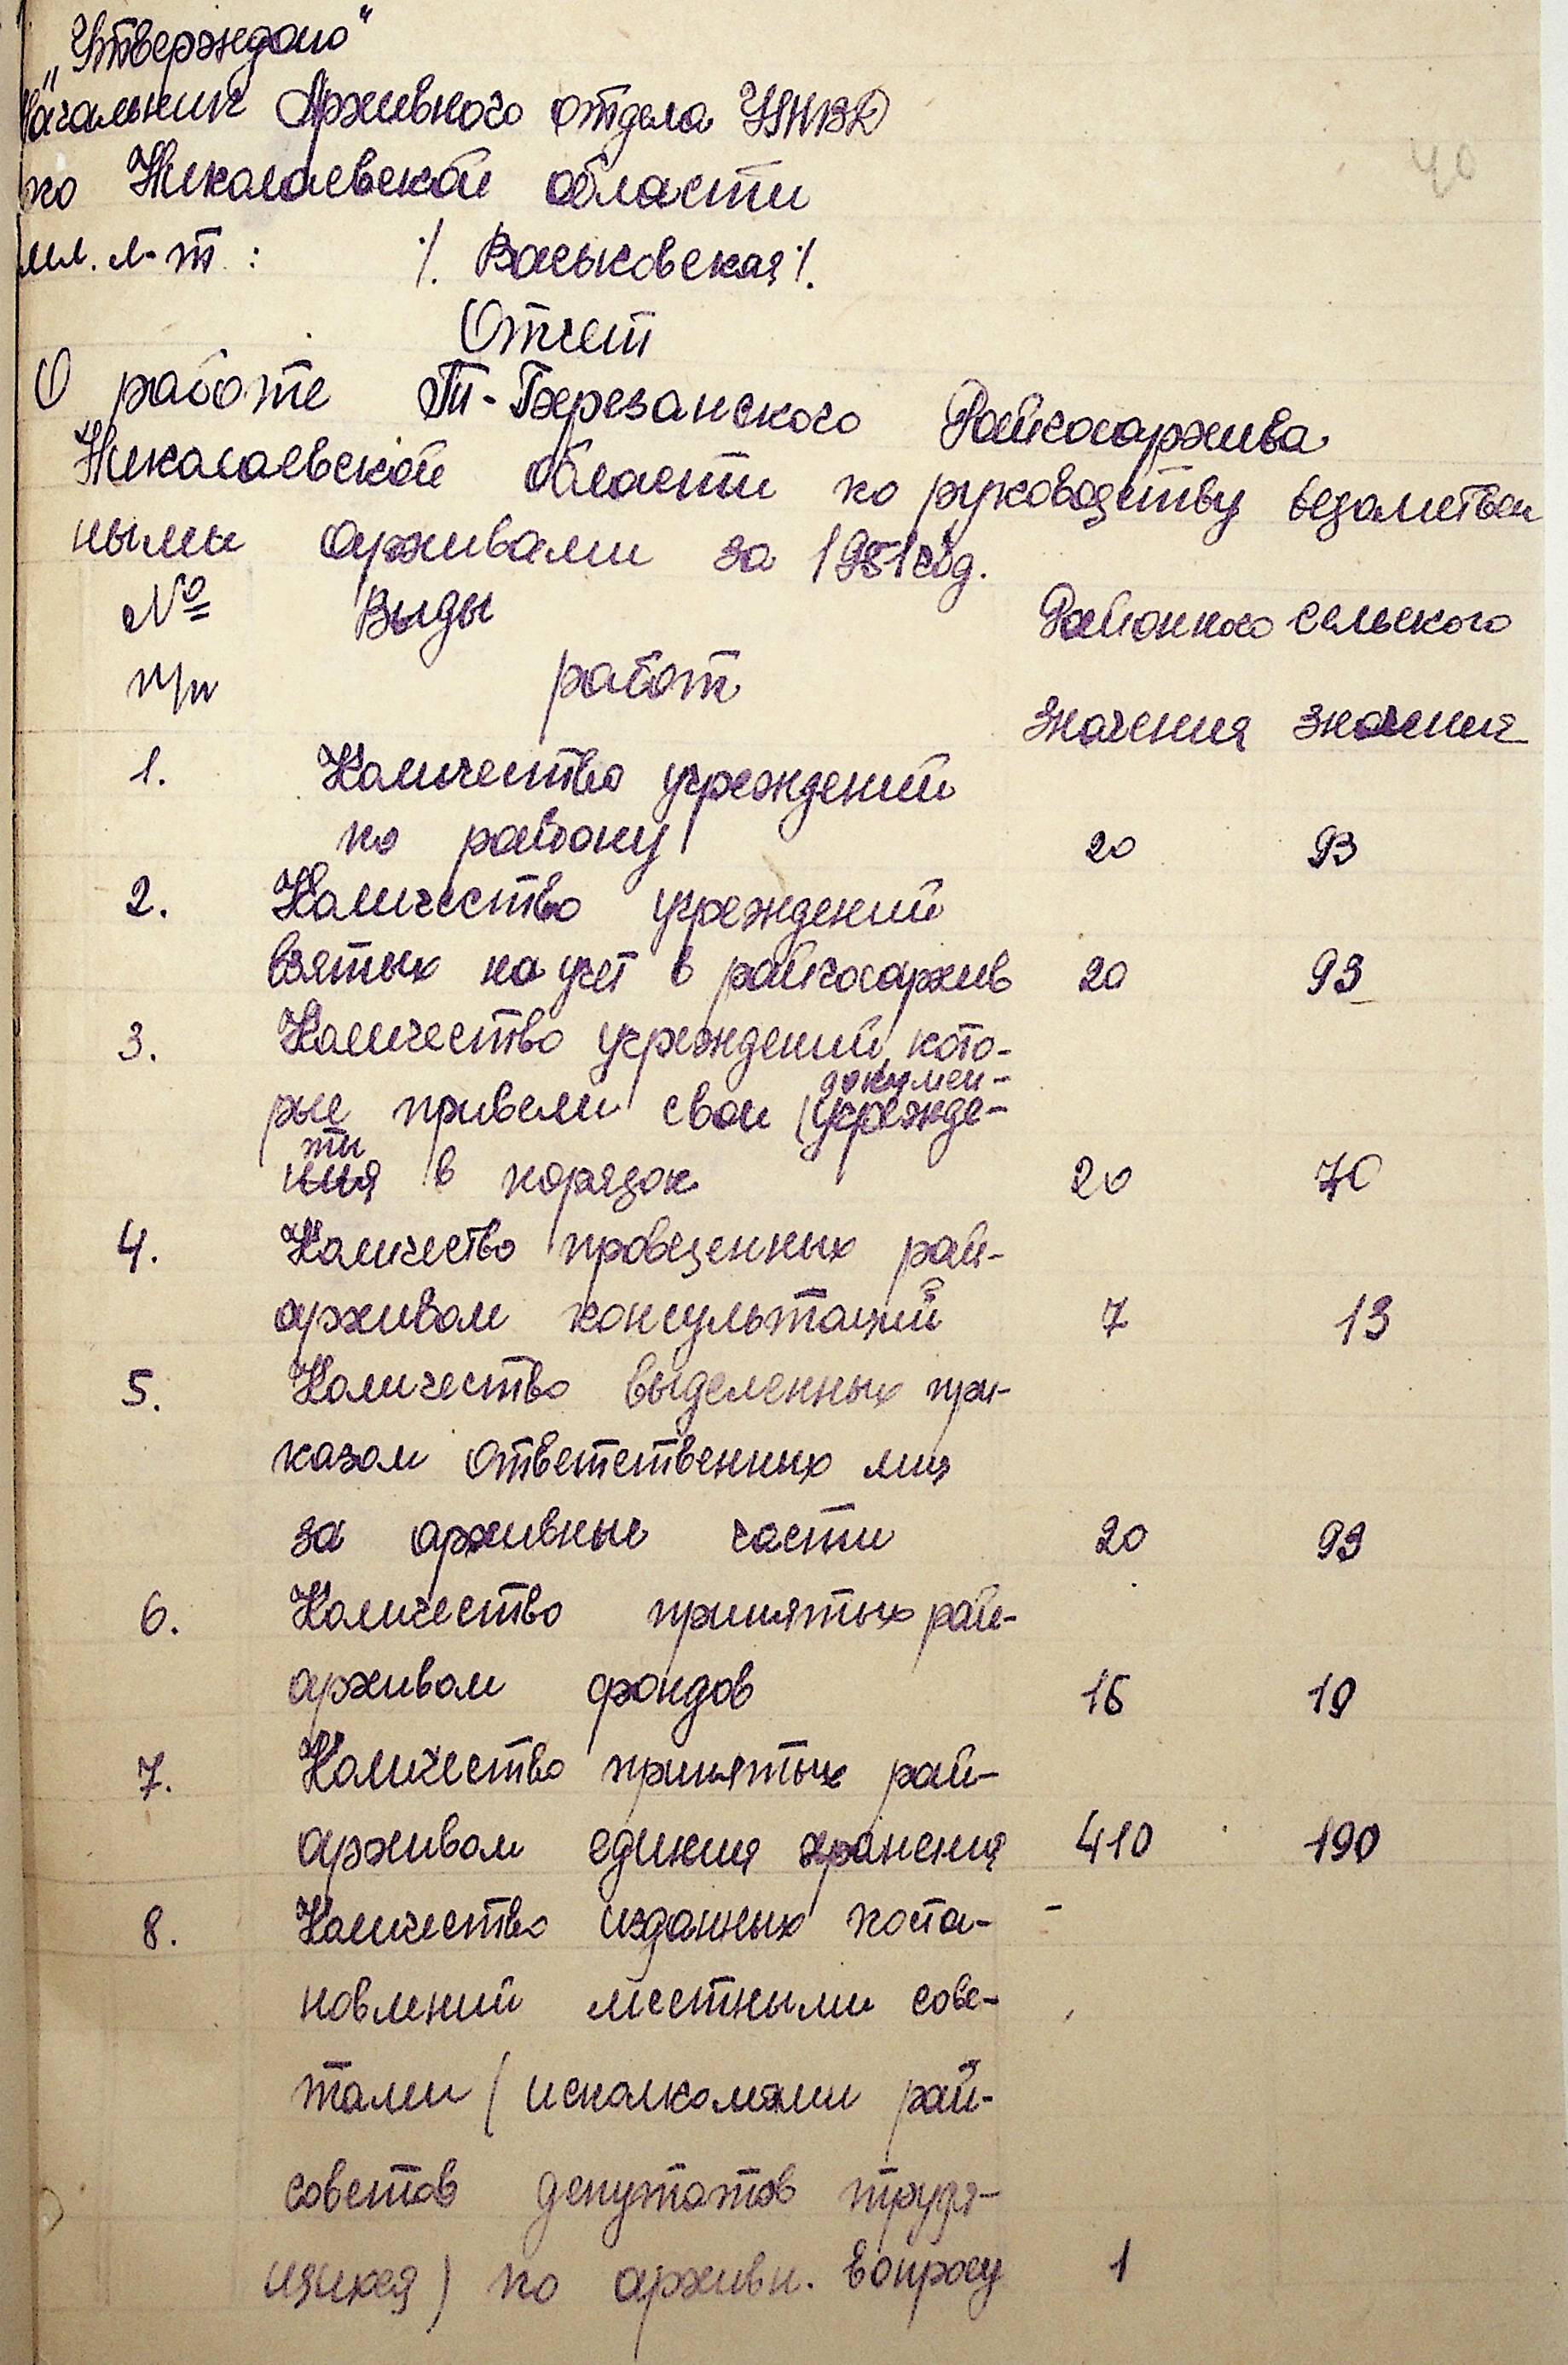 „Утверждаю“
Начальник Архивного отдела УМВД
по Николаевской области
мл. л-т : /. Васьковская /.
40
Отчет
О работе Т-Березанского Райгосархива
Николаевской области по руководству ведомствен
ными архивами за 1951 год.
№ Виды Районного сельского
п/п работ значения значения
1. Количество учреждений
по району 20 93
2. Количество учреждений
взятых на учет в райгосархив 20 93
3. Количество учреждений, кото-
докумен-
рые привели свои учрежде-
ты
ния в порядок 20 70
4. Количество проведенных рай-
архивом консультаций 7 13
5. Количество выделенных при-
казом ответственных лиц
за архивные части 20 93
6. Количество принятых рай-
архивом фондов 16 19
7. Количество принятых рай-
архивом единиц хранения 410 190
8. Количество изданных поста- -
новлений местными сове-
тами (исполкомами рай-
советов депутатов трудя-
щихся) по архивн. вопросу 1